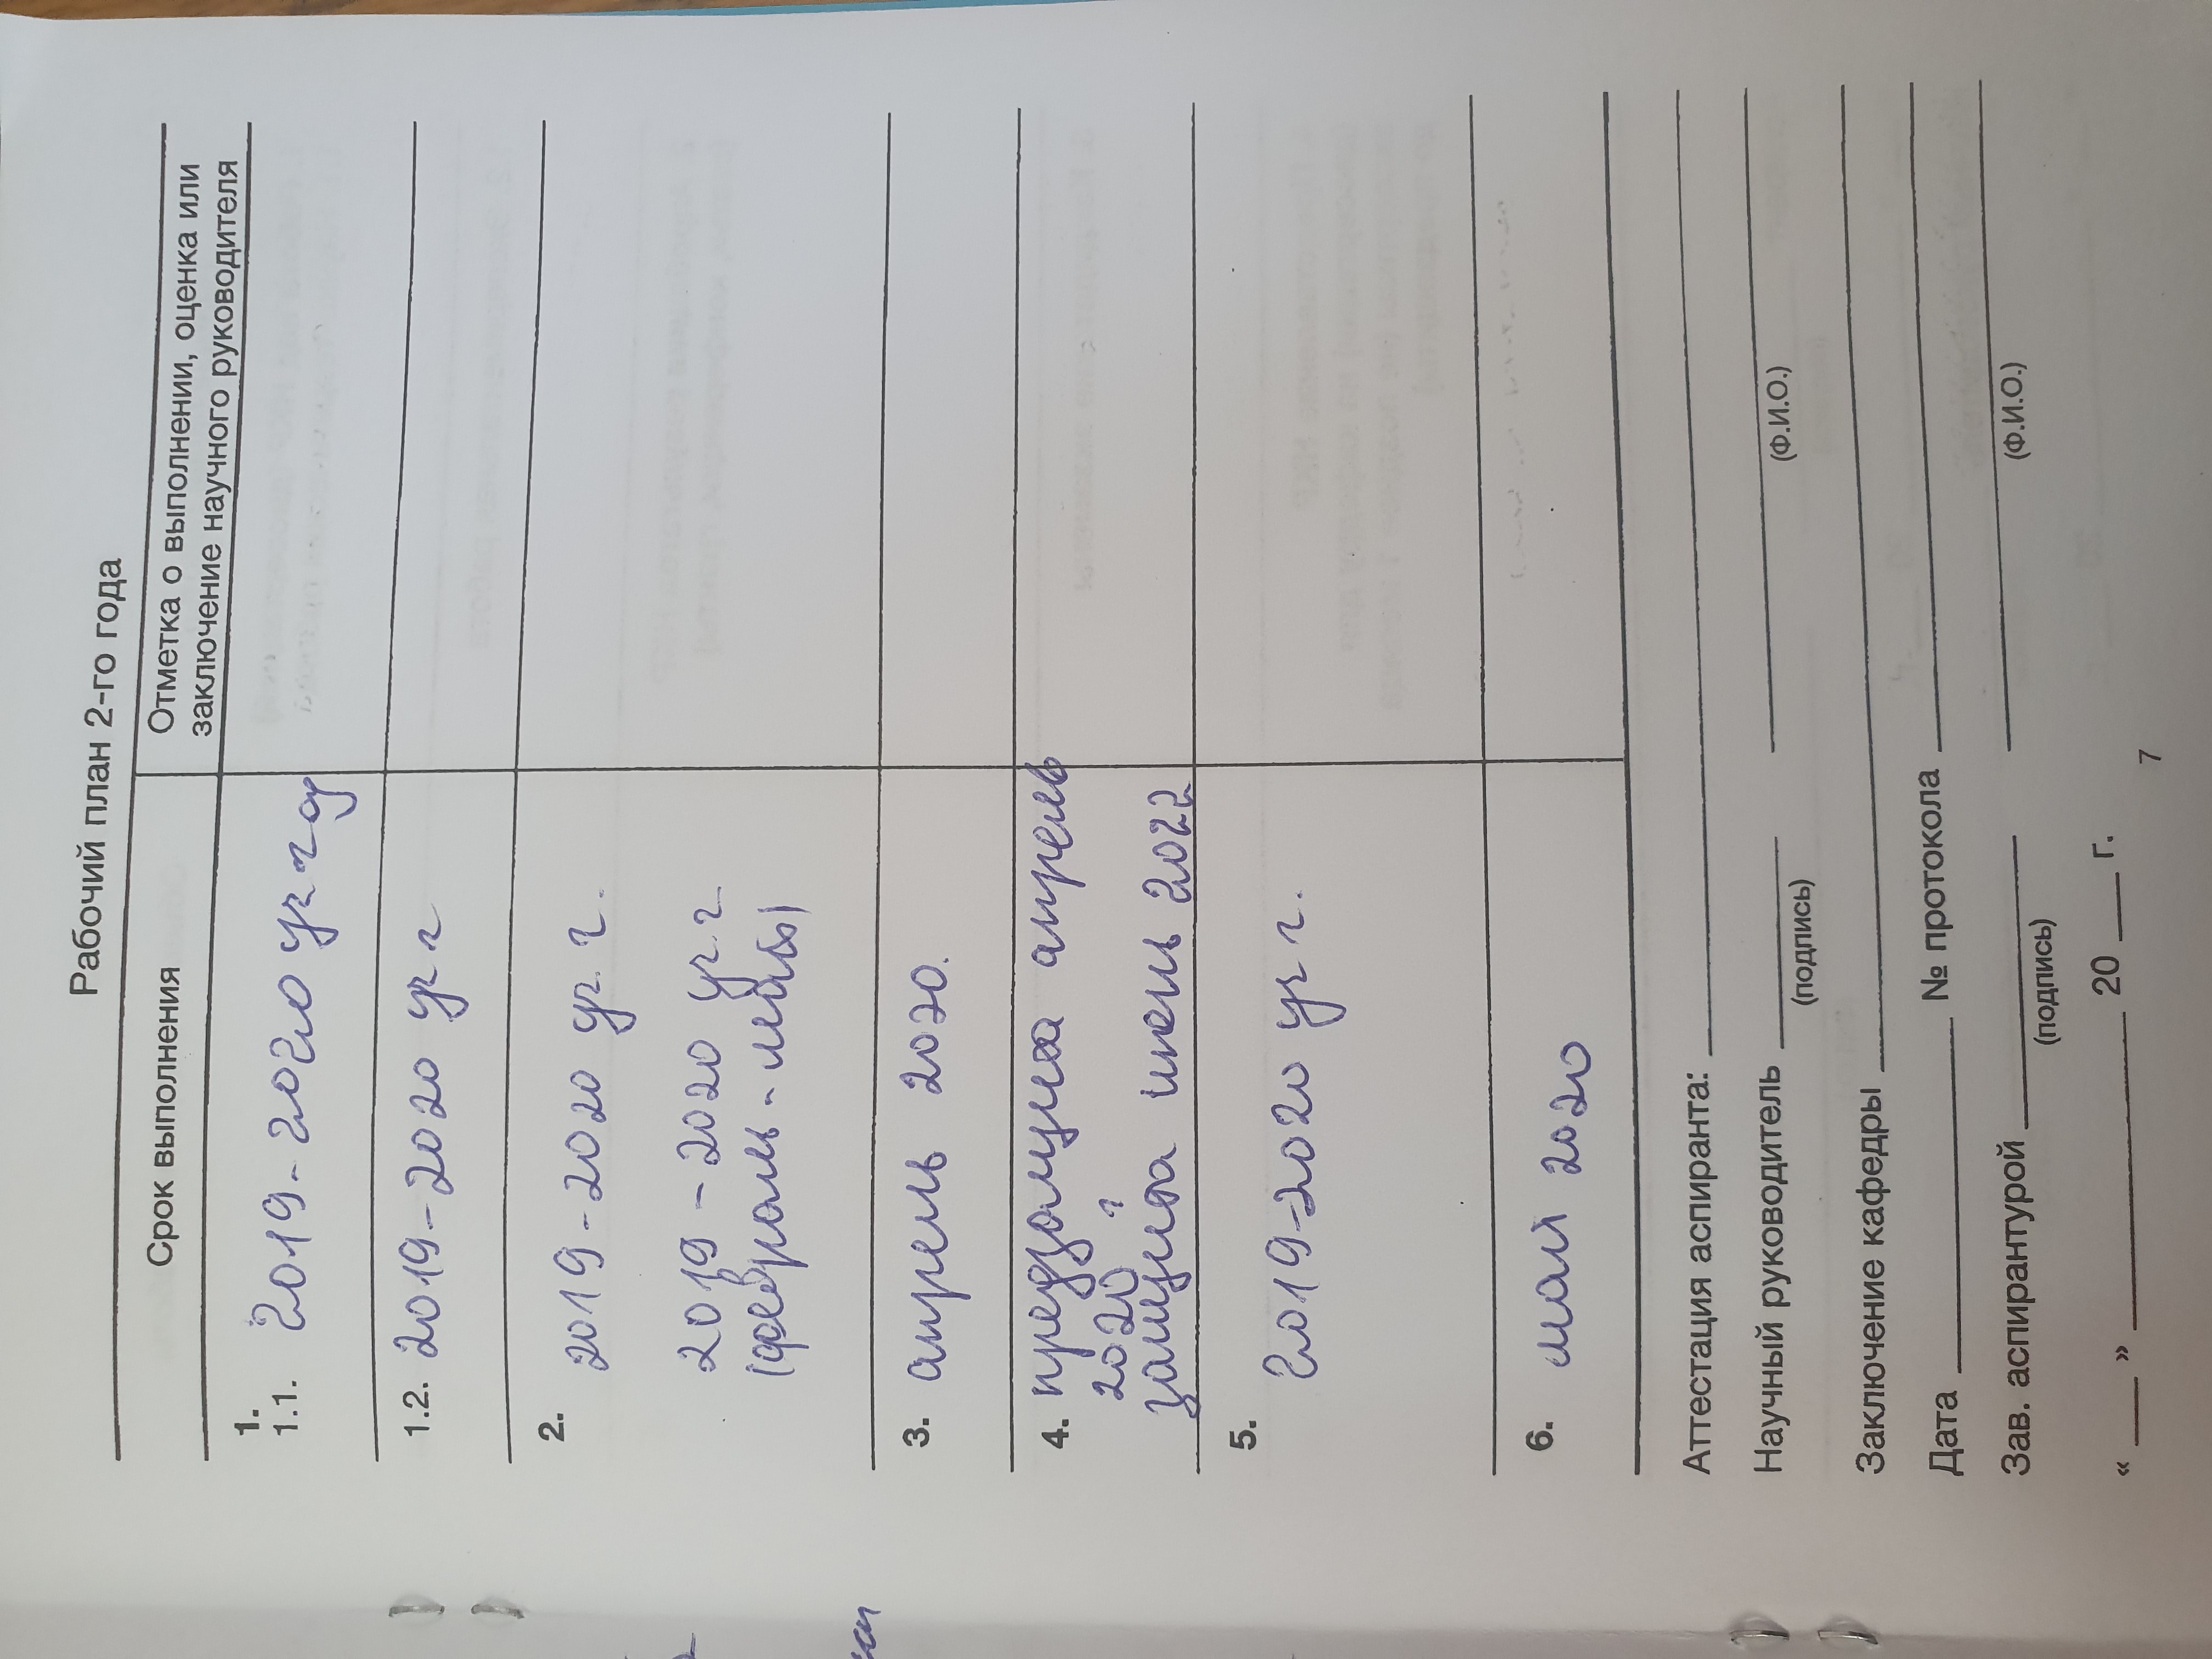 Рабочий план 2-го года
Срок выполнения
Отметка о выполнении, оценка или
заключение научного руководителя
1.
1.1. 2019-2020 уч год
1.2. 2019-2020 уч г
2.
2019-2020 уч. г.
2019-2020 уч. г
(февраль-
3. апрель 2020.
4. предзащита апрель
2020 г
защита июнь 2022
5.
2019-2020 уч г.
6. май 2020
Аттестация аспиранта:
Научный руководитель
(подпись) (Ф.И.О.)
Заключение кафедры
Дата № протокола
Зав. аспирантурой
(подпись) (Ф.И.О.)
« » 20 г.
7